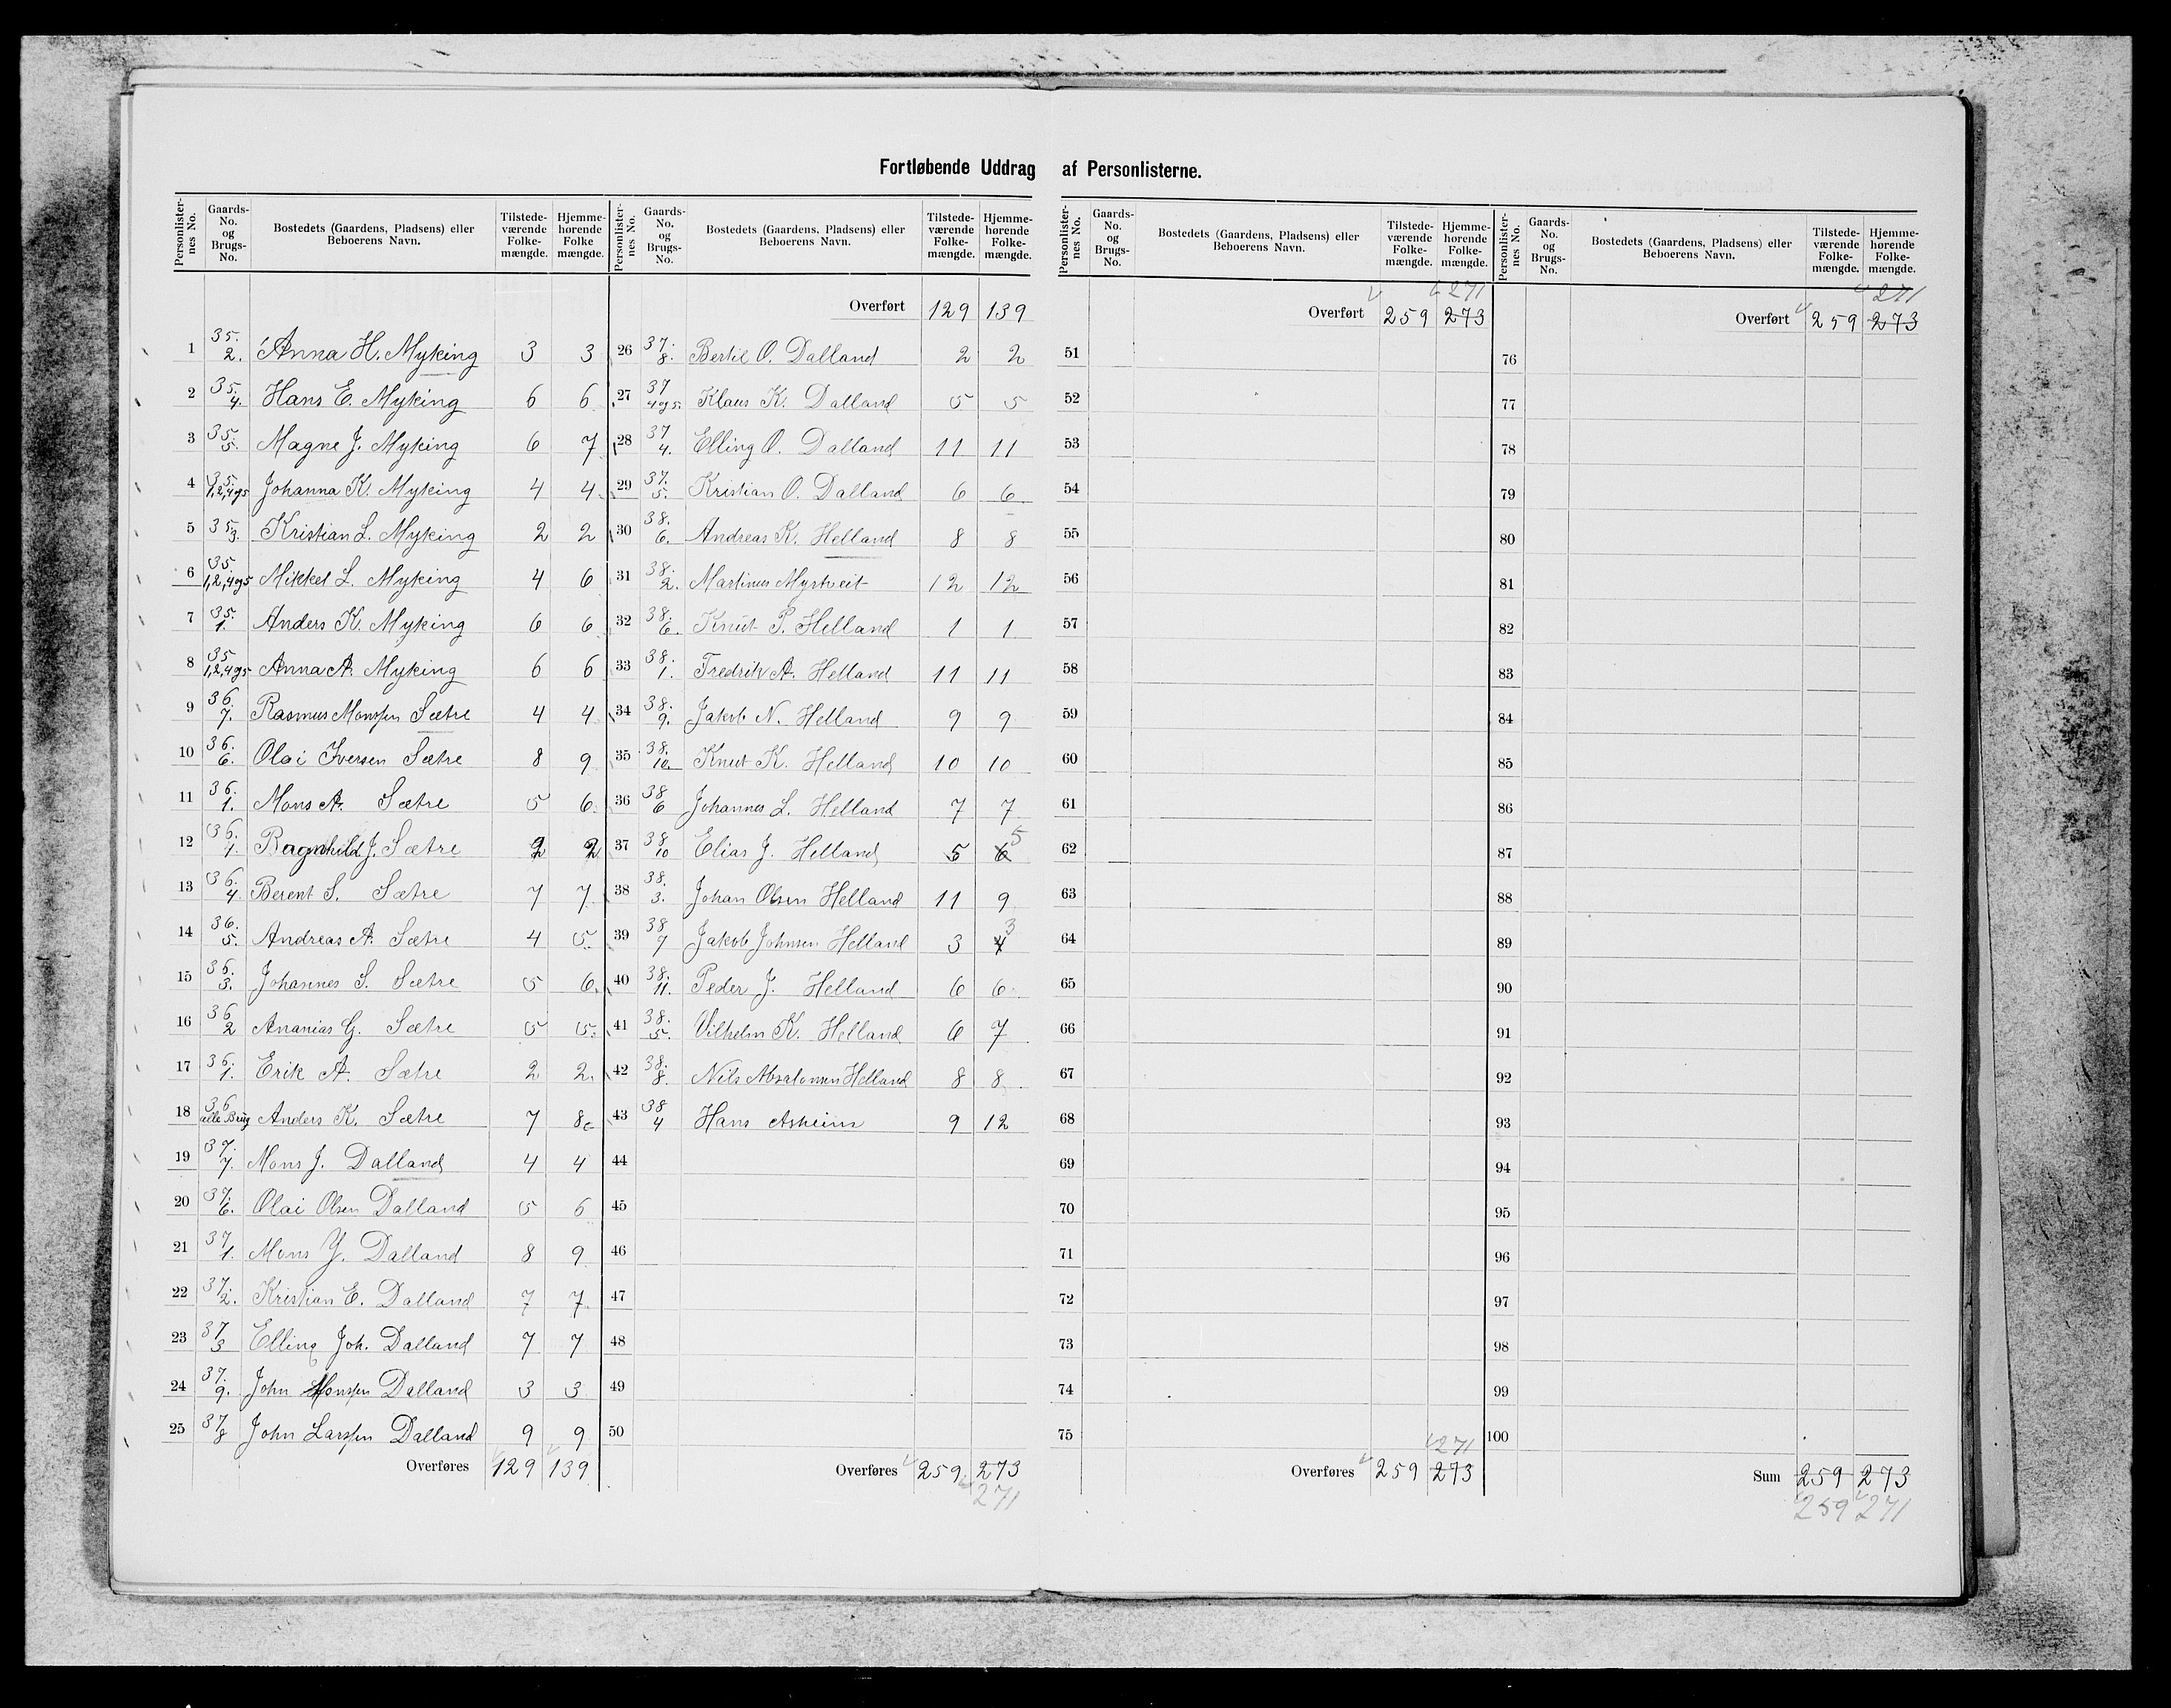 Fortløbende Uddrag af Personlisterne.
Personlister-nes No. Gaards-No. og Brugs-No. Bostedets (Gaardens, Pladsens) eller Beboerens Navn. Tilstede-værende Folke-mængde. Hjemme-hørende Folke mængde.
1 35. 2. Anna H. Myking 3 3
2 35. 4. Hans E. Myking 6 6
3 35. 5. Magne J. Myking 6 7
4 35. 1,2,4og5 Johanna K. Myking 4 4
5 35. 3. Kristian L. Myking 2 2
6 35 1,2,4og5 Mikkel L. Myking 4 6
7 35. 1. Anders K. Myking 6 6
8 35 1,2,4og5 Anna A. Myking 6 6
9 36. 7. Rasmus Monssen Sætre 4 4
10 36. 6. Olai Iversen Sætre 8 9
11 36. 1. Mons A. Sætre 5 6
12 36. 1. Ragnhild J. Sætre 2 2
13 36. 4. Berent S. Sætre 7 7
14 36. 5. Andreas A. Sætre 4 5
15 36. 3. Johannes S. Sætre 5 6
16 36 2 Ananias G. Sætre 5 5
17 36. 1. Erik A. Sætre 2 2
18 36 alle Brug Anders K. Sætre 7 8
19 37. 7. Mons J. Dalland 4 4
20 37. 6. Olai Olsen Dalland 5 6
21 37 1. Mons Y. Dalland 8 9
22 37. 2. Kristian E. Dalland 7 7
23 37 3 Elling Joh. Dalland 7 7
24 37. 9. John Monssen Dalland 3 3
25 37 8 John Larssen Dalland 9 9
Overføres 129 139
Personlister-nes No. Gaards-No. og Brugs-No. Bostedets (Gaardens, Pladsens) eller Beboerens Navn. Tilstede-værende Folke-mængde. Hjemme-hørende Folke-mængde.
Overført 129 139
26 37. 8. Bertil O. Dalland 2 2
27 37 4og5. Klaus K. Dalland 5 5
28 37 4. Elling O. Dalland 11 11
29 37. 5. Kristian O. Dalland 6 6
30 38. 6. Andreas K. Helland 8 8
31 38. 2. Martinus Myrtveit 12 12
32 38. 6. Knut P. Helland 1 1
33 38. 1. Fredrik A. Helland 11 11
34 38. 9. Jakob N. Helland 9 9
35 38. 10. Knut K. Helland 10 10
36 38 6 Johannes L. Helland 7 7
37 38 10 Elias J. Helland 5 6 5
38 38. 3. Johan Olsen Helland 11 9
39 38 7 Jakob Johnsen Helland 3 4 3
40 38. 11. Peder J. Helland 6 6
41 38. 5. Vilhelm K. Helland 6 7
42 38. 8. Nils Absalonsen Helland 8 8
43 38 4 Hans Askeim 9 12
44
45
46
47
48
49
50
Overføres 259 273
271
Personlister-nes No. Gaards-No. og Brugs-No. Bostedets (Gaardens, Pladsens) eller Beboerens Navn. Tilstede-værende Folke-mængde. Hjemme-hørende Folke-mængde.
271
Overført 259 273
51
52
53
54
55
56
57
58
59
60
61
62
63
64
65
66
67
68
69
70
71
72
73
74
75
271
Overføres 259 273
Personlister-nes No. Gaards-No. og Brugs-No. Bostedets (Gaardens, Pladsens) eller Beboerens Navn. Tilstede-værende Folke-mængde. Hjemme-hørende Folke-mængde.
271
Overført 259 273
76
77
78
79
80
81
82
83
84
85
86
87
88
89
90
91
92
93
94
95
96
97
98
99
100
Sum 259 273
259 271